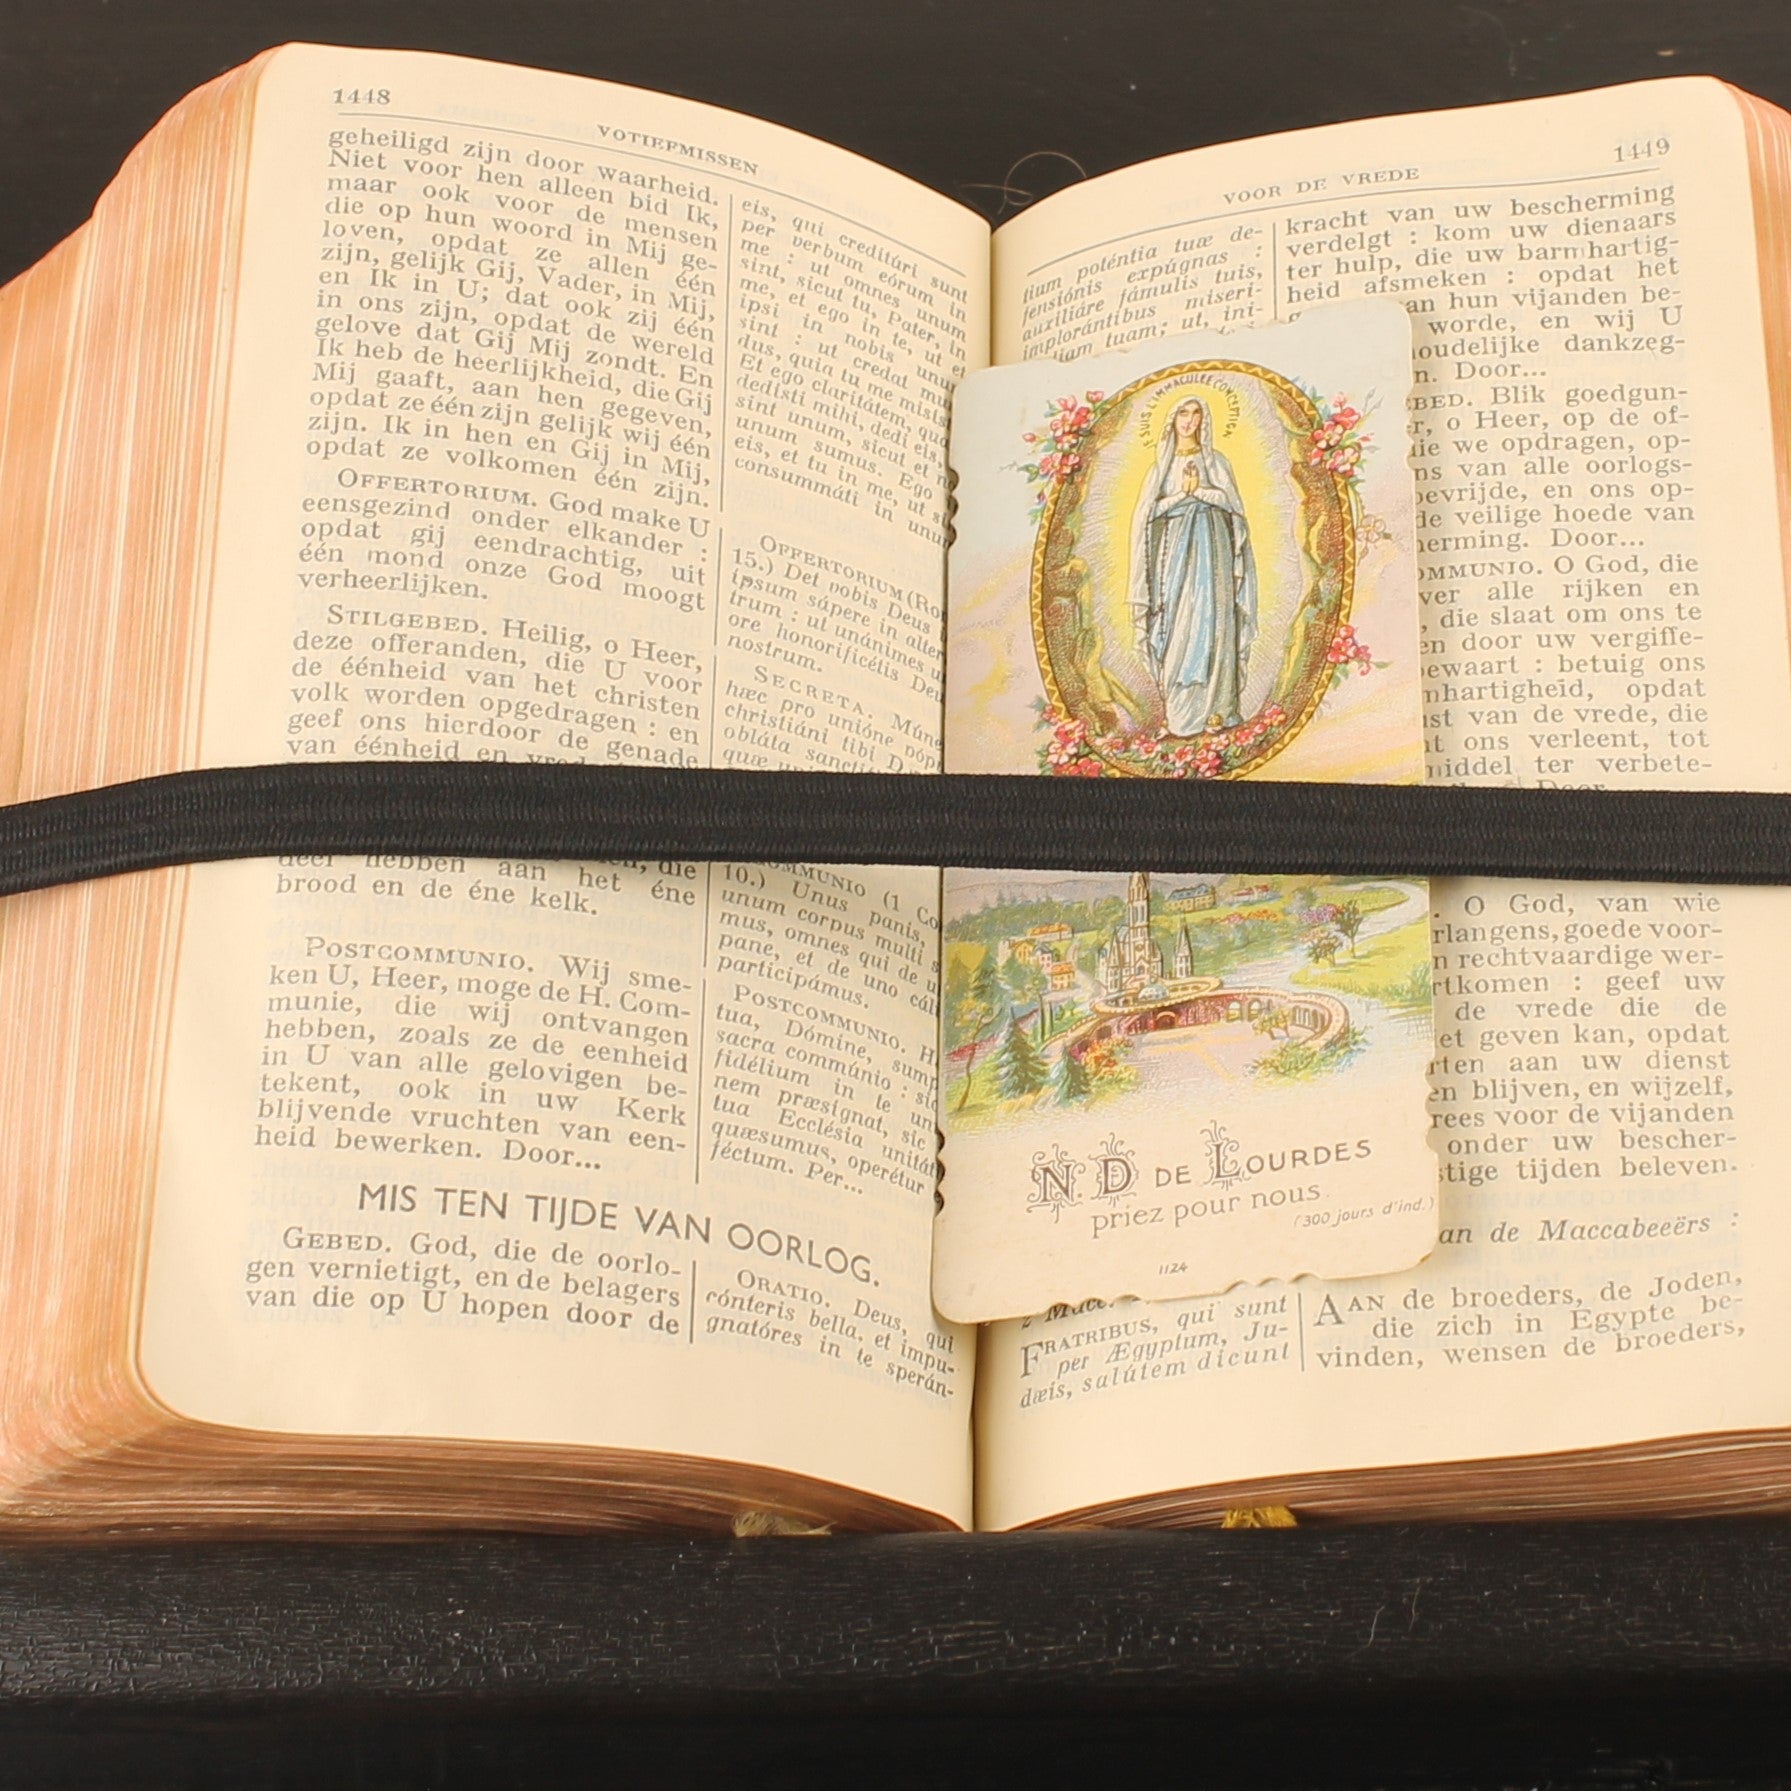 1448
VOTIEFMISSEN
geheiligd zijn door waarheid.
Niet voor hen alleen bid Ik,
maar ook voor de mensen
die op hun woord in Mij ge-
loven, opdat ze allen één
zijn, gelijk Gij, Vader, in Mij,
en Ik in U; dat ook zij één
in ons zijn, opdat de wereld
gelove dat Gij Mij zondt. En
Ik heb de heerlijkheid, die Gij
Mij gaaft, aan hen gegeven,
opdat ze één zijn gelijk wij één
zijn. Ik in hen en Gij in Mij,
opdat ze volkomen één zijn.
OFFERTORIUM. God make U
eensgezind onder elkander :
opdat gij eendrachtig, uit
één mond onze God moogt
verheerlijken.
STILGEBED. Heilig, o Heer,
deze offeranden, die U voor
de éénheid van het christen
volk worden opgedragen : en
geef ons hierdoor de genade
van éénheid en
die
deel hebben aan het éne
brood en de éne kelk.
POSTCOMMUNIO. Wij sme-
ken U, Heer, moge de H. Com-
munie, die wij ontvangen
hebben, zoals ze de eenheid
in U van alle gelovigen be-
tekent, ook in uw Kerk
blijvende vruchten van een-
heid bewerken. Door...
eis, qui creditúri sunt
per verbum eórum in
me : ut omnes unum
sint, sicut tu, Pater, in
me, et ego in te, ut et
ipsi in nobis unum
sint : ut credat
dus, quia tu me misisti
Et ego claritátem,
dedísti mihi, dedi eis,
sint unum, sicut et
unum sumus. Ego
eis, et tu in me, ut
consummáti in
OFFERTORIUM
15.) Det vobis Deus
ipsum sápere in
trum : ut unánimes
ore honorificétis
nostrum.
SECRETA.
hæc pro unióne
christiáni tibi
obláta
quæ
(1
10.) Unus panis,
unum corpus multi
mus, omnes qui de
pane, et de uno
participámus.
POSTCOMMUNIO.
tua, Dómine,
sacra commúnio :
fidélium in te
nem præsígnat, sic
tua Ecclésia
quæsumus, operétur
féctum. Per...
MIS TEN TIJDE VAN OORLOG.
GEBED. God, die de oorlo-
gen vernietigt, en de belagers
van die op U hopen door de
ORATIO. Deus, qui
cónteris bella, et impu-
gnatóres in te sperán-
VOOR DE VREDE
1449
tium poténtia tuæ de-
fensiónis expúgnas :
auxiliáre fámulis tuis,
implorántibus miseri-
tuam; ut, ini-
kracht van uw bescherming
verdelgt : kom uw dienaars
ter hulp, die uw barmhartig-
heid afsmeken : opdat het
hun vijanden be-
worde, en wij U
dankzeg-
Door...
Blik goedgun-
o Heer, op de of-
we opdragen, op-
van alle oorlogs-
en ons op-
veilige hoede van
Door...
O God, die
alle rijken en
, die slaat om ons te
door uw vergiffe-
: betuig ons
opdat
van de vrede, die
ons verleent, tot
ter verbete-
. O God, van wie
goede voor-
rechtvaardige wer-
: geef uw
de vrede die de
geven kan, opdat
aan uw dienst
blijven, en wijzelf,
voor de vijanden
onder uw bescher-
tijden beleven.
de Maccabeeërs :
FRATRIBUS, qui sunt
per Ægyptum, Ju-
dæis, salútem dicunt
AAN de broeders, de Joden,
die zich in Egypte be-
vinden, wensen de broeders,
JE SUIS L'IMMACULEE CONCEPTION
N. D DE LOURDES
priez pour nous.
(300 jours d'ind.)
1124